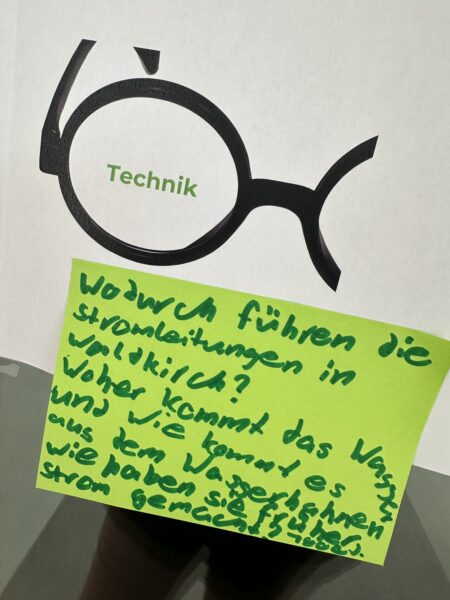 Technik
Wodurch führen die
stromleitungen in
waldkirch?
Woher kommt das Wasser
und wie kommt es
aus dem Wasserhahnen
wie haben sie früher
strom gemacht?